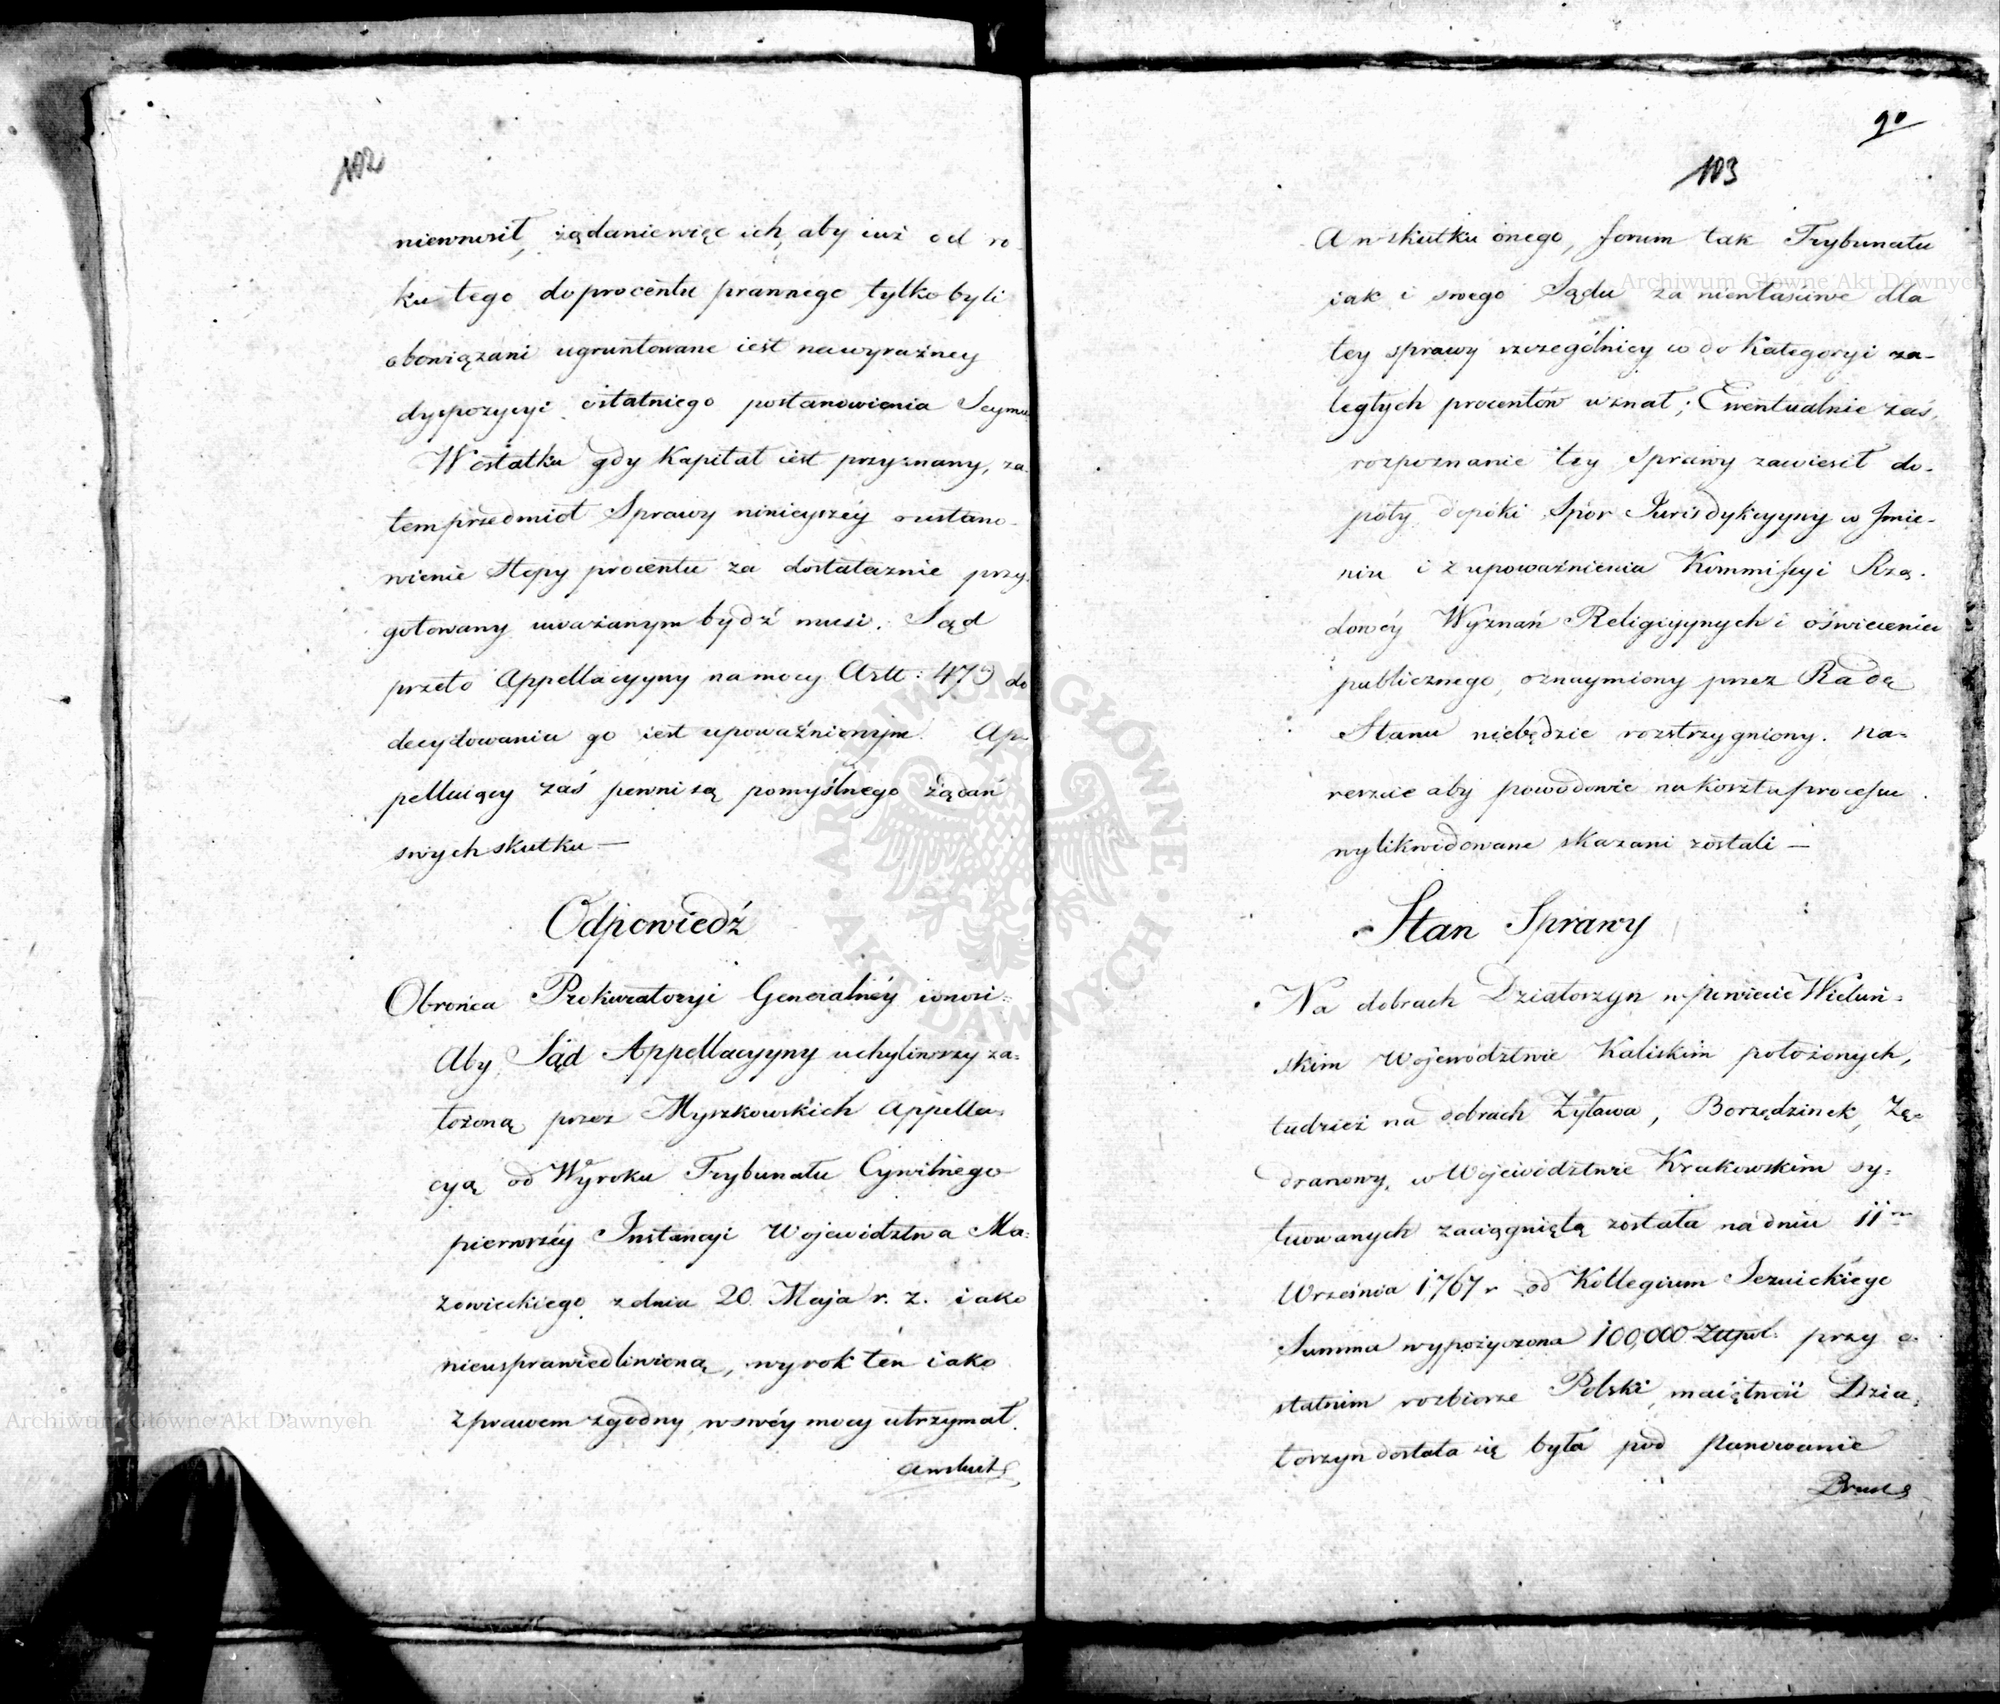 102
niewnosił, żądanie więc ich, aby iuż od ro-
ku tego do procentu prawnego tylko byli
obowiązani ugruntowane iest na wyraźney
dyspozycyi ostatniego postanowienia Seymu
W ostatku gdy Kapitał iest przyznany, za-
tem przedmiot Sprawy ninieyszéy o ustano-
wienie Stopy procentu za dostatecznie przy-
gotowany uważanym bydź musi. Sąd
przeto Appellacyyny na mocy Artt: 473 do
decydowania go iest upoważnionym. Ap-
pelluiący zaś pewni są pomyślnego żądań
swych skutku —
Odpowiedź
Obrońca Prokuratoryi Generalnéy wnosi:
Aby Sąd Appellacyyny uchyliwszy za-
łożoną przez Myszkowskich Appella-
cyą od Wyroku Trybunału Cywilnego
pierwszéy Instancyi Województwa Ma-
zowieckiego z dnia 20. Maja r. z. iako
nieusprawiedliwioną, wyrok ten iako
z prawem zgodny, w swéy mocy utrzymał.
A w skutk
90
103
A w skutku onego, forum tak Trybunału
iak i swego Sądu za niewłaściwe dla
tey sprawy szczególniey co do Kategoryi za-
ległych procentów uznał; Ewentualnie zaś,
rozpoznanie tey Sprawy zawiesił do-
póty dopóki Spór Jurisdykcyyny w Jmie-
niu i z upoważnienia Kommissyi Rzą-
dowéy Wyznań Religiyynych i oświecenia
publicznego, oznaymiony przez Radę
Stanu niebędzie rozstrzygniony. na-
reszcie aby powodowie na koszta processu
wylikwidowane skazani zostali —
Stan Sprawy
Na dobrach Działoszyn w powiecie Wieluń-
skim Województwie Kaliskim położonych,
tudzież na dobrach Żytawa, Borzędzinek, Zę-
dranowy, w Województwie Krakowskim sy-
tuowanych zaciągniętą została na dniu 11m
Września 1767 r od Kollegium Jezuickiego
Summa wypożyczona 100,000 Złtpol: przy o-
statnim rozbiorze Polski, maiętność Dzia-
łoszyn dostała się była pod Panowanie
Prus
Archiwum Główne Akt Dawnych
Archiwum Główne Akt Dawnych
ARCHIWUM GŁÓWNE · AKT DAWNYCH ·